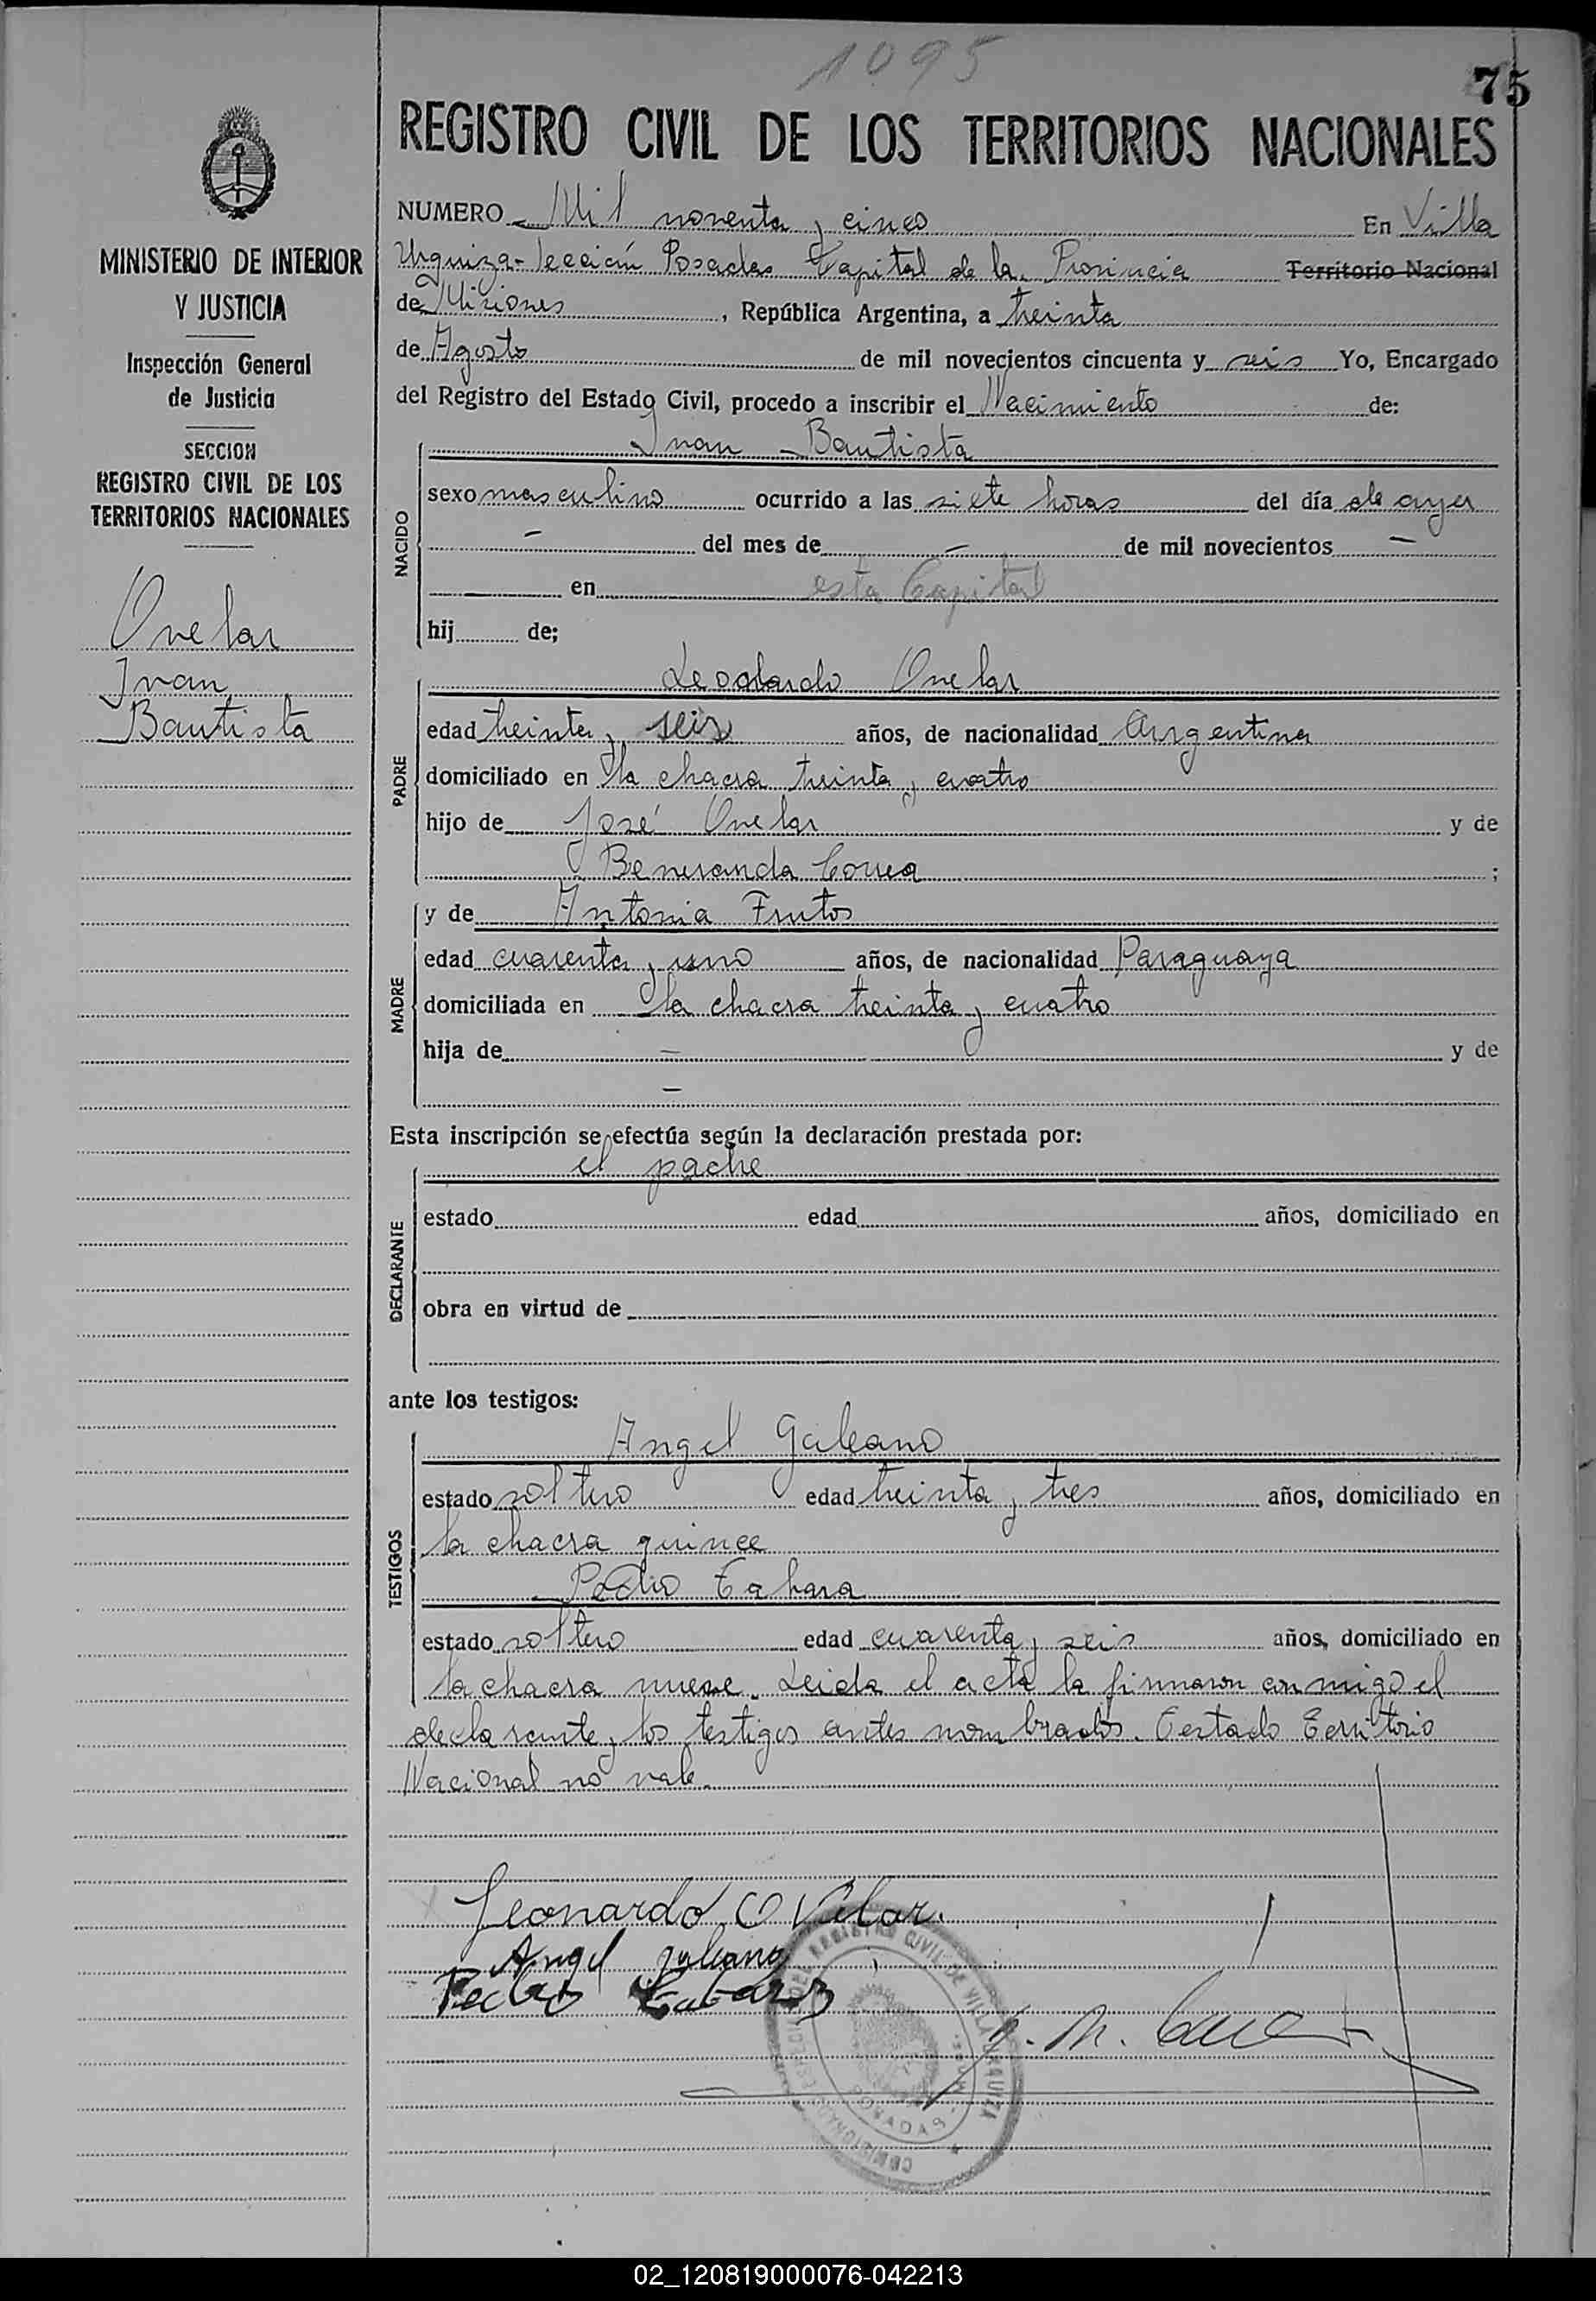 1095
75
REGISTRO CIVIL DE LOS TERRITORIOS NACIONALES
MINISTERIO DE INTERIOR
Y JUSTICIA
Inspección General
de Justicia
SECCION
REGISTRO CIVIL DE LOS
TERRITORIOS NACIONALES
Ovelar
Juan
Bautista
NUMERO Mil noventa y cinco En Villa
Urquiza - Sección Posadas Capital de la Provincia Territorio Nacional
de Misiones, República Argentina, a treinta
de Agosto de mil novecientos cincuenta y seis Yo, Encargado
del Registro del Estado Civil, procedo a inscribir el Nacimiento de:
NACIDO
Juan Bautista
sexo masculino ocurrido a las siete horas del día de ayer
— del mes de — de mil novecientos —
en esta Capital
hij de;
PADRE
Ovelar
edad treinta y seis años, de nacionalidad Argentina
domiciliado en la chacra treinta y cuatro
hijo de José Ovelar y de
Beneranda Correa ;
MADRE
y de Antonia Frutos
edad cuarenta y uno años, de nacionalidad Paraguaya
domiciliada en la chacra treinta y cuatro
hija de — y de
—
Esta inscripción se efectúa según la declaración prestada por:
DECLARANTE
el padre
estado edad años, domiciliado en
obra en virtud de
ante los testigos:
TESTIGOS
Angel Galeano
estado soltero edad treinta y tres años, domiciliado en
la chacra quince
Pedro
estado soltero edad cuarenta y seis años, domiciliado en
la chacra nueve. Leida el acta la firmaron conmigo el
declarante y los testigos antes nombrados. Testado Territorio
Nacional no vale.
Leonardo Ovelar.
Angel Galeano
Pedro
REGISTRO CIVIL DE VILLA URQUIZA
POSADAS
02_120819000076-042213